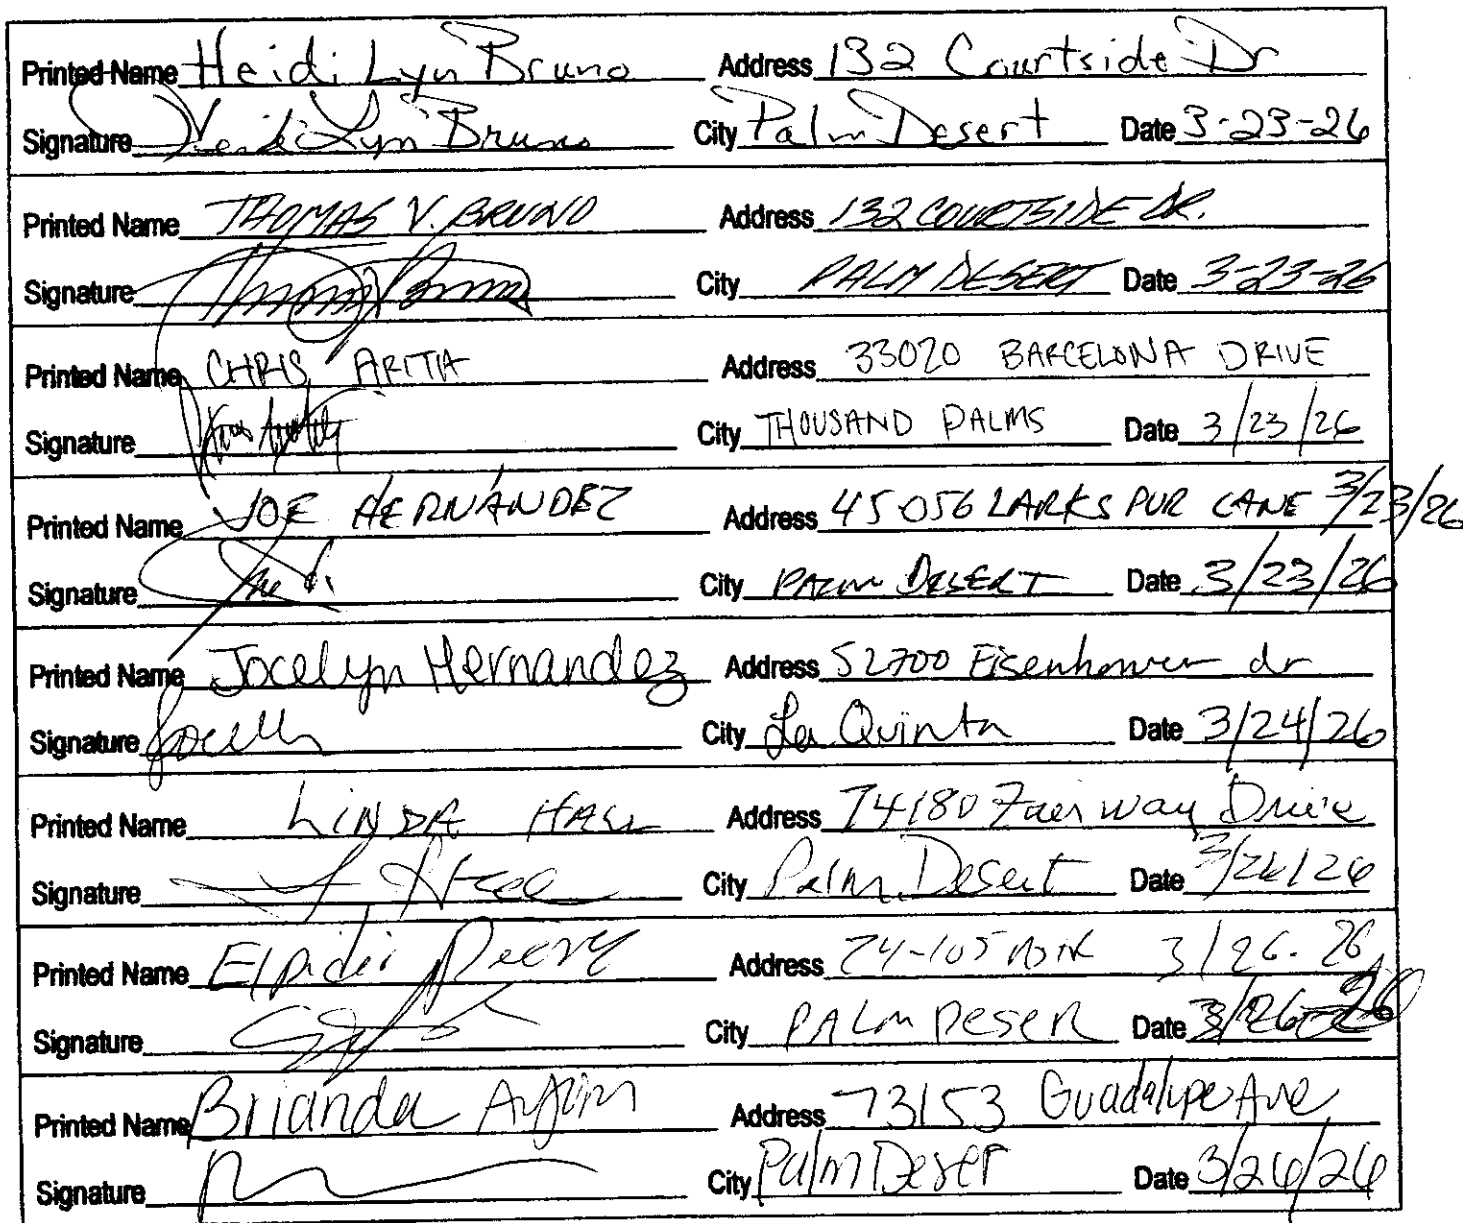 Printed Name Heidi Lyn Bruno Address 132 Courtside Dr
Signature Heidi Lyn Bruno City Palm Desert Date 3-23-26
Printed Name THOMAS V. BRUNO Address 132 COURTSIDE DR.
Signature City PALM DESERT Date 3-23-26
Printed Name CHRIS Address 33020 BARCELONA DRIVE
Signature City THOUSAND PALMS Date 3/23/26
Printed Name JOE HERNANDEZ Address 45056 LARKS PUR LANE 3/23/26
Signature City PALM DESERT Date 3/23/26
Printed Name Jocelyn Hernandez Address 52700 Eisenhower dr
Signature City La Quinta Date 3/24/26
Printed Name LINDA HALL Address 74180 Fairway Drive
Signature City Palm Desert Date 3/26/26
Printed Name Address 74-105 3/26-26
Signature City PALm Deser Date 3/26-26
Printed Name Brianda Address 73153 Guadalupe Ave
Signature City Palm Deser Date 3/26/26